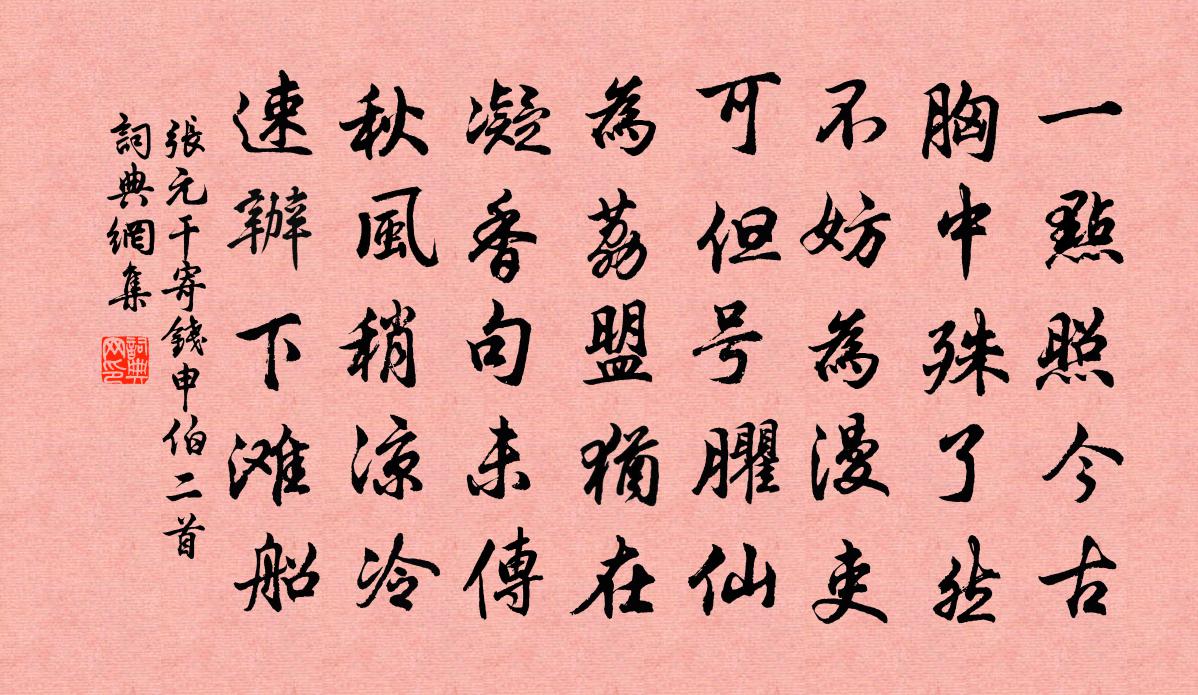 一點照今古
胸中殊了然
不妨為漫吏
可但号臞仙
為荔盟猶在
凝香句未傳
秋風稍凉冷
速辦下滩船
張元干寄錢申伯二首
詞典網集
詞典网印